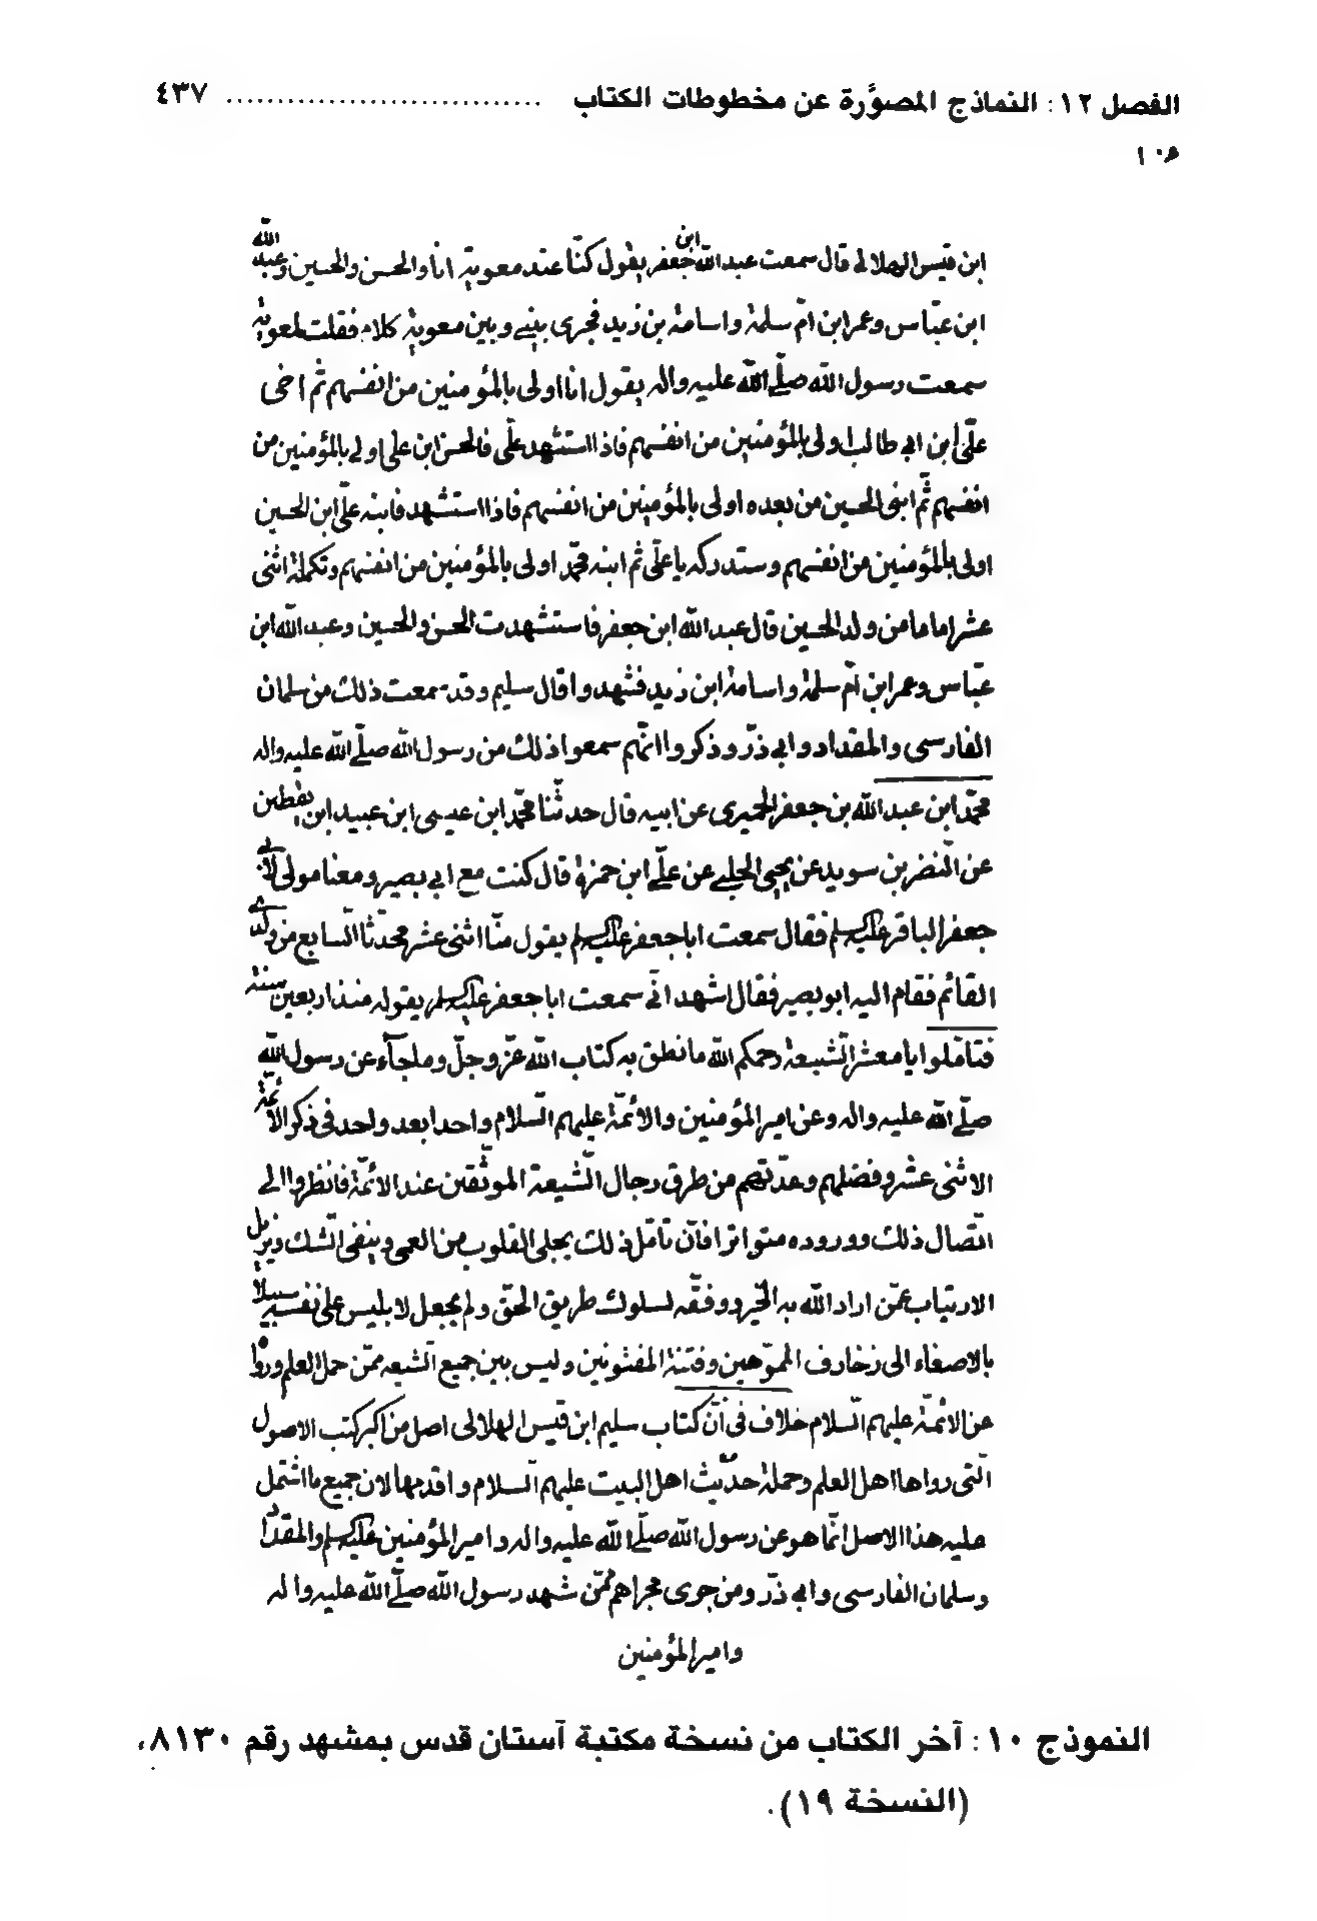 الفصل ١٢: النماذج المصوَّرة عن مخطوطات الكتاب .............................. ٤٣٧
ابن قيس الهلالى قال سمعت عبد الله ابن جعفر يقول كنّا عند معوية انا والحسن والحسين وعبد الله
ابن عبّاس وعمر ابن امّ سلمة واسامة بن زيد فجرى بينى وبين معوية كلام فقلت لمعوية
سمعت رسول الله صلّى الله عليه واله يقول انا اولى بالمؤمنين من انفسهم ثم اخى
علّى ابن ابى طالب اولى بالمؤمنين من انفسهم فاذا استشهد علّى فالحسن ابن على اولى بالمؤمنين من
انفسهم ثّم ابنى الحسين من بعده اولى بالمؤمنين من انفسهم فاذا استشهد فابنه علّى ابن الحسين
اولى بالمؤمنين من انفسهم وستدركه يا علّى ثم ابنه محمّد اولى بالمؤمنين من انفسهم وتكملة اثنى
عشر اماما من ولد الحسين قال عبد الله ابن جعفر فاستشهدت الحسن والحسين وعبد الله ابن
عبّاس وعمر ابن امّ سلمة واسامة ابن زيد فشهدوا قال سليم وقد سمعت ذلك من سلمان
الفارسى والمقداد وابى ذرّ وذكروا انّهم سمعوا ذلك من رسول الله صلّى الله عليه واله
محمّد ابن عبد الله بن جعفر الحميرى عن ابيه قال حدثّنا محمّد ابن عيسى ابن عبيد ابن يقطين
عن النّضر بن سويد عن يحيى الحلبى عن علّى ابن حمزة قال كنت مع ابى بصير ومعنا مولى لابى
جعفر الباقر عليه السلم فقال سمعت ابا جعفر عليه السلم يقول منّا اثنى عشر محدّثا السّابع من ولدى
القائم فقام اليه ابو بصير فقال اشهد انّى سمعت ابا جعفر عليه السلم يقوله منذ اربعين سنة
فتامّلوا يا معشر الشّيعة رحمكم الله ما نطق به كتاب الله عزّ وجلّ وما جآء عن رسول الله
صلّى الله عليه واله وعن امير المؤمنين والائمّة عليهم السّلام واحدا بعد واحد فى ذكر الائمّة
الاثنى عشر وفضلهم وعدّتهم من طرق رجال الشّيعة الموثّقين عند الائمّة فانظروا الى
اتّصال ذلك ووروده متواترا فانّ تامّل ذلك يجلى القلوب من العمى وينفى الشّك ويزيل
الارتياب عمّن اراد الله به الخير ووفقّه لسلوك طريق الحقّ ولم يجعل لابليس على نفسه سبيلا
بالاصغاء الى زخارف المموّهين وفتنة المفتونين وليس بين جميع الشّيعه ممّن حمل العلم ورواه
عن الائمّة عليهم السّلام خلاف فى انّ كتاب سليم ابن قيس الهلالى اصل من اكبر كتب الاصول
الّتى رواها اهل العلم وحملة حديث اهل البيت عليهم السّلام واقدمها لان جميع ما اشتمل
عليه هذا الاصل انّما هو عن رسول الله صلّى الله عليه واله وامير المؤمنين عليه السلم والمقداد
وسلمان الفارسى وابى ذرّ ومن جرى مجراهم ممّن شهد رسول الله صلّى الله عليه واله
وامير المؤمنين
النموذج ١٠: آخر الكتاب من نسخة مكتبة آستان قدس بمشهد رقم ٨١٣٠،
(النسخة ١٩).